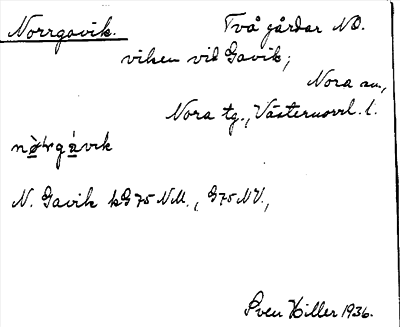 Norrgavik. Två gårdar NO.
viken vid Gavik;
Nora sn,
Nora tg., Västernorrl. l.
N. Gavik kG 75 NM., G 75 NV.,
Sven Hiller 1936.